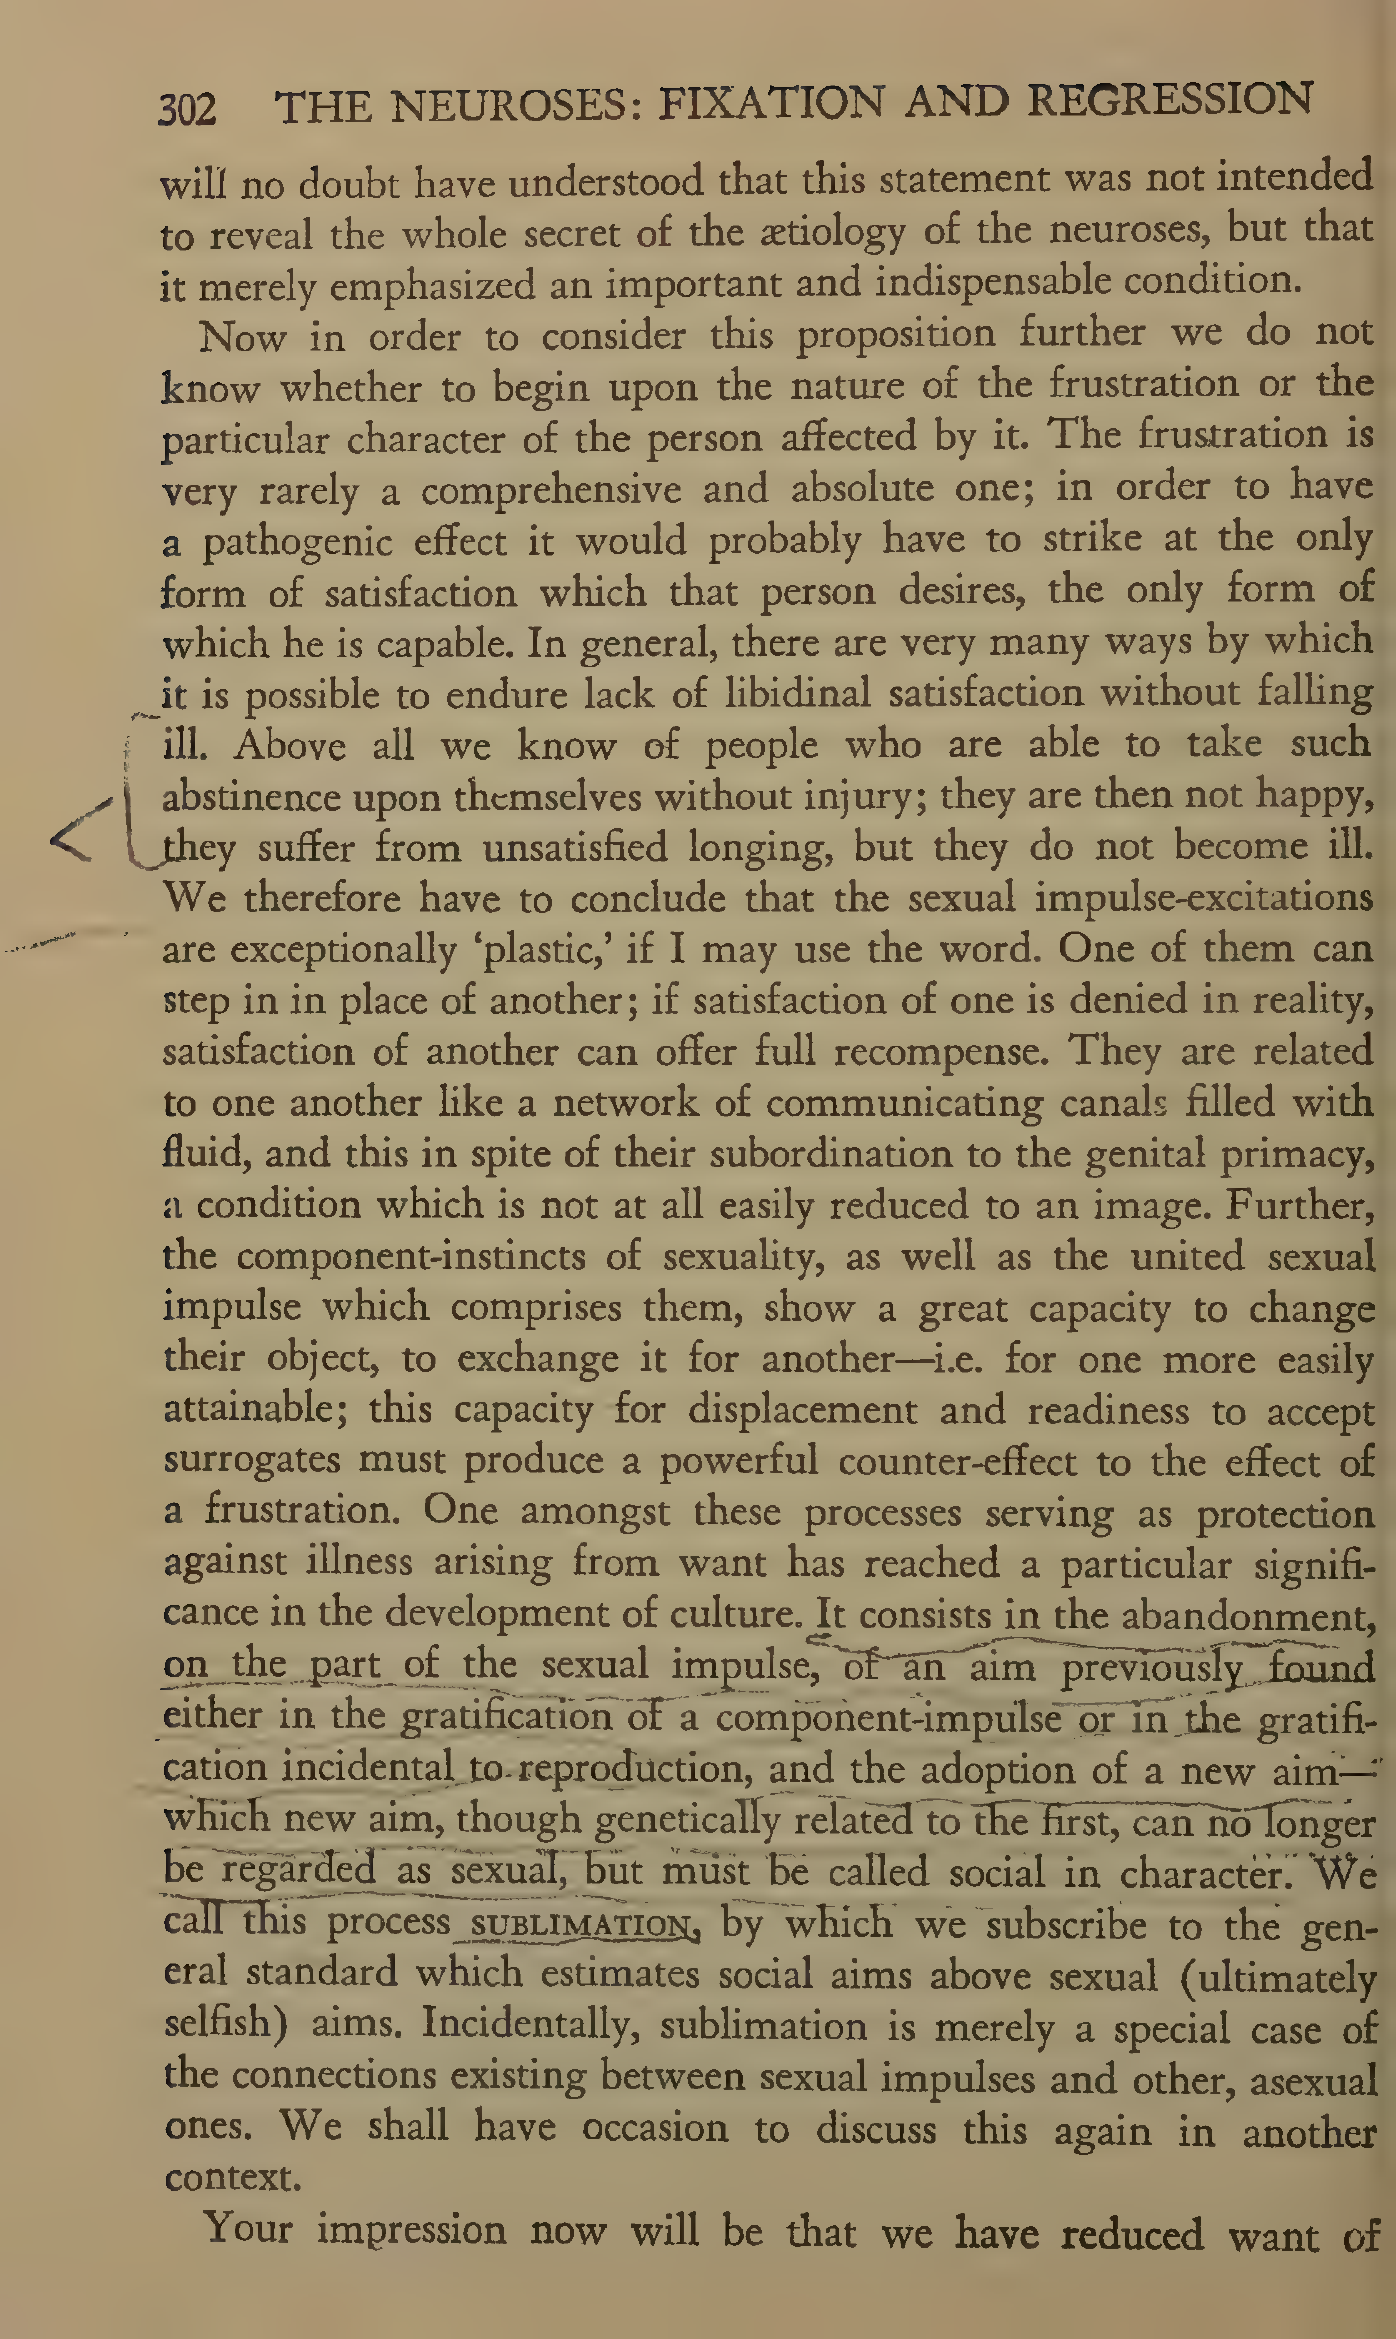 302 THE NEUROSES: FIXATION AND REGRESSION
will no doubt have understood that this statement was not intended
to reveal the whole secret of the ætiology of the neuroses, but that
it merely emphasized an important and indispensable condition.
Now in order to consider this proposition further we do not
know whether to begin upon the nature of the frustration or the
particular character of the person affected by it. The frustration is
very rarely a comprehensive and absolute one; in order to have
a pathogenic effect it would probably have to strike at the only
form of satisfaction which that person desires, the only form of
which he is capable. In general, there are very many ways by which
it is possible to endure lack of libidinal satisfaction without falling
ill. Above all we know of people who are able to take such
abstinence upon themselves without injury; they are then not happy,
they suffer from unsatisfied longing, but they do not become ill.
We therefore have to conclude that the sexual impulse-excitations
are exceptionally ‘plastic,’ if I may use the word. One of them can
step in in place of another; if satisfaction of one is denied in reality,
satisfaction of another can offer full recompense. They are related
to one another like a network of communicating canals filled with
fluid, and this in spite of their subordination to the genital primacy,
a condition which is not at all easily reduced to an image. Further,
the component-instincts of sexuality, as well as the united sexual
impulse which comprises them, show a great capacity to change
their object, to exchange it for another—i.e. for one more easily
attainable; this capacity for displacement and readiness to accept
surrogates must produce a powerful counter-effect to the effect of
a frustration. One amongst these processes serving as protection
against illness arising from want has reached a particular signifi-
cance in the development of culture. It consists in the abandonment,
on the part of the sexual impulse, of an aim previously found
either in the gratification of a component-impulse or in the gratifi-
cation incidental to reproduction, and the adoption of a new aim—
which new aim, though genetically related to the first, can no longer
be regarded as sexual, but must be called social in character. We
call this process SUBLIMATION, by which we subscribe to the gen-
eral standard which estimates social aims above sexual (ultimately
selfish) aims. Incidentally, sublimation is merely a special case of
the connections existing between sexual impulses and other, asexual
ones. We shall have occasion to discuss this again in another
context.
Your impression now will be that we have reduced want of